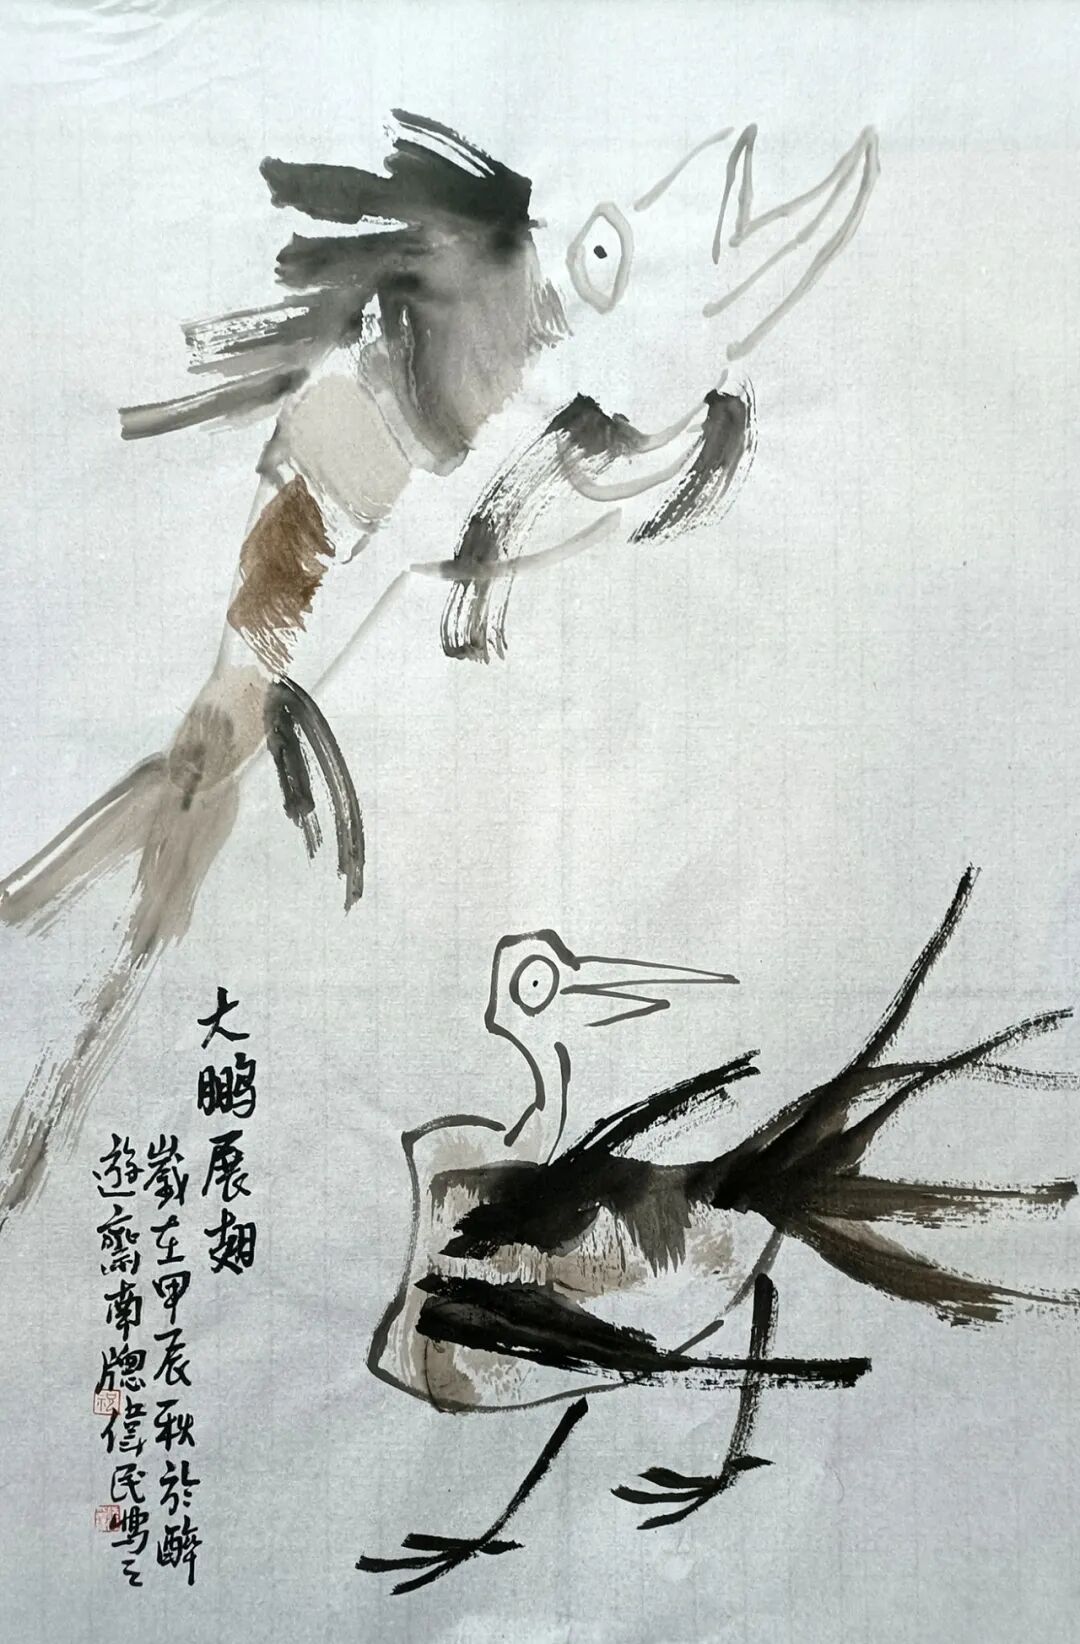 大鹏展翅
岁在甲辰秋於醉
遊齋南牕伟民写之